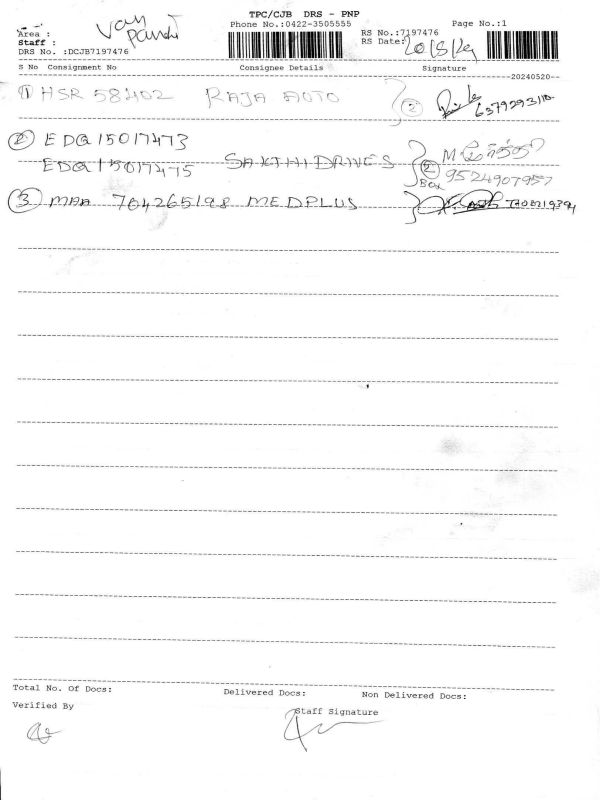 TPC/CJB DRS - PNP
Phone No.:0422-3505555
Page No.:1
Area :
Van
Pandi
Staff :
DRS No. :DCJB7197476
RS No.:7197476
RS Date: 20/5/24
S No Consignment No Consignee Details Signature
20240520
1 HSR 58402 RAJA AUTO 2
6379293110
2 EDQ15017473
EDQ15017475 SAKTHI DRIVES 2 Box
9524907957
3 MAA 704265198 MEDPLUS
Total No. Of Docs: Delivered Docs: Non Delivered Docs:
Verified By Staff Signature